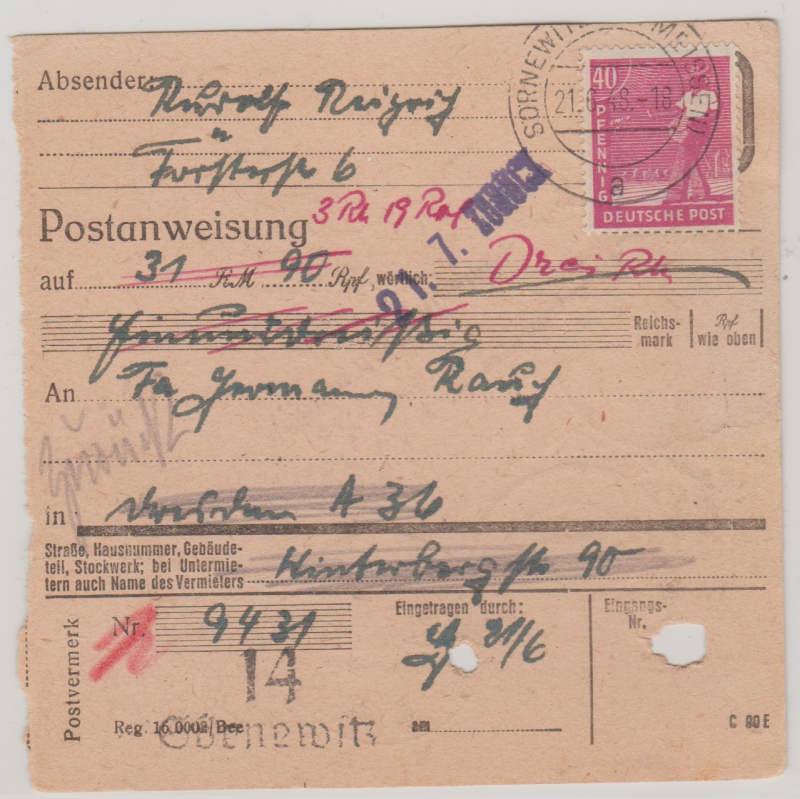 Absender: Rudolf
Försterstr 6
SÖRNEWITZ MEISSEN
21.6.48.-18
a
40
PFENNIG
DEUTSCHE POST
3 Rm 19 Rpf
ZURÜCK
Postanweisung
21. 7.
auf 31 RM 90 Rpf, wörtlich: Drei Rm
Einunddreißig Reichsmark Rpf wie oben
An Fa Hermann Rauch
zurück
in Dresden A 36
Straße, Hausnummer, Gebäude-
teil, Stockwerk; bei Untermie-
tern auch Name des Vermieters Winterbergstr 90
Postvermerk
Nr. 9431
Eingetragen durch:
21/6
Eingangs-
Nr.
14
Reg. 16.0002/Bee
C 90 E